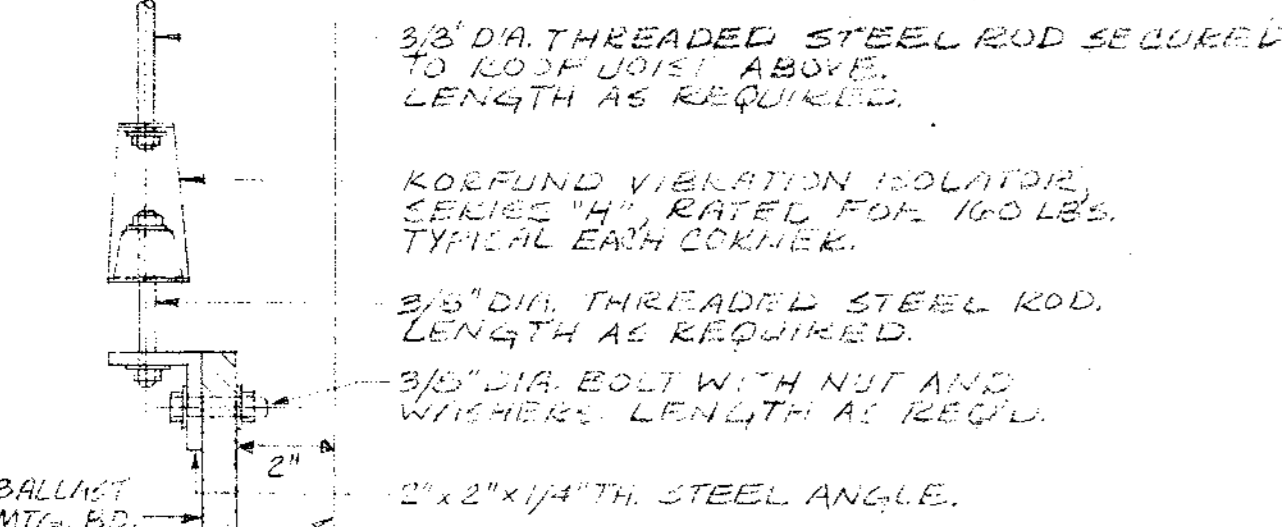 3/8" DIA. THREADED STEEL ROD SECURED
TO ROOF JOIST ABOVE.
LENGTH AS REQUIRED.
KORFUND VIBRATION ISOLATOR,
SERIES "H", RATED FOR 160 LBS.
TYPICAL EACH CORNER.
3/8" DIA. THREADED STEEL ROD.
LENGTH AS REQUIRED.
3/8" DIA. BOLT WITH NUT AND
WASHERS LENGTH AS REQ'D.
2"
BALLAST
MTG. BD.
2" x 2" x 1/4" TH. STEEL ANGLE.